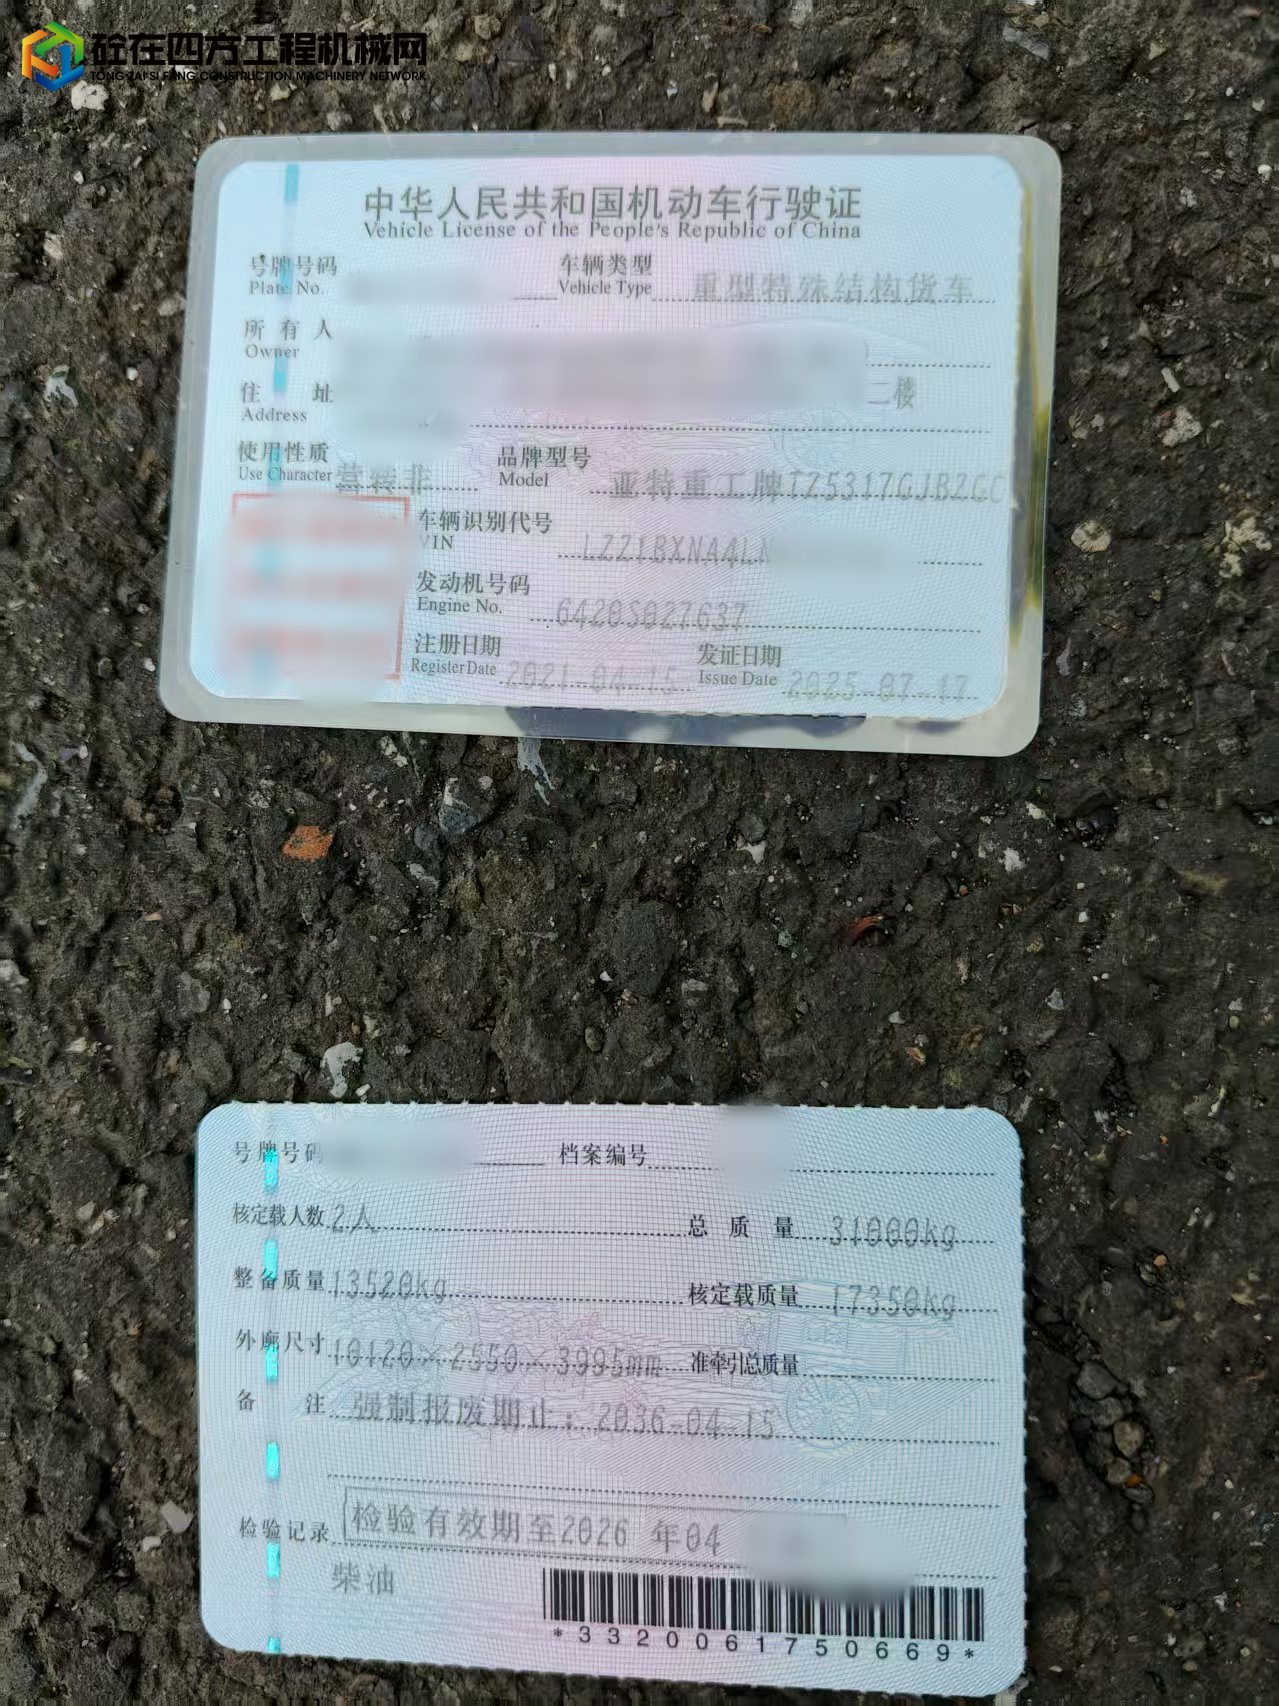 砼在四方工程机械网
TONG ZAI SI FANG CONSTRUCTION MACHINERY NETWORK
中华人民共和国机动车行驶证
Vehicle License of the People's Republic of China
号牌号码 车辆类型 重型特殊结构货车
Plate No. Vehicle Type
所有人
Owner
住址 二楼
Address
使用性质 营转非 品牌型号 亚特重工牌TZ5317GJBZGC
Use Character Model
车辆识别代号 LZZ1BXNA4LN
VIN
发动机号码 6420S027637
Engine No.
注册日期 2021-04-15 发证日期 2025-07-17
Register Date Issue Date
号牌号码 档案编号
核定载人数 2人 总质量 31000kg
整备质量 13520kg 核定载质量 17350kg
外廓尺寸 10120×2550×3995mm 准牵引总质量
备注 强制报废期止：2036-04-15
检验记录 检验有效期至2026年04
柴油
*3320061750669*